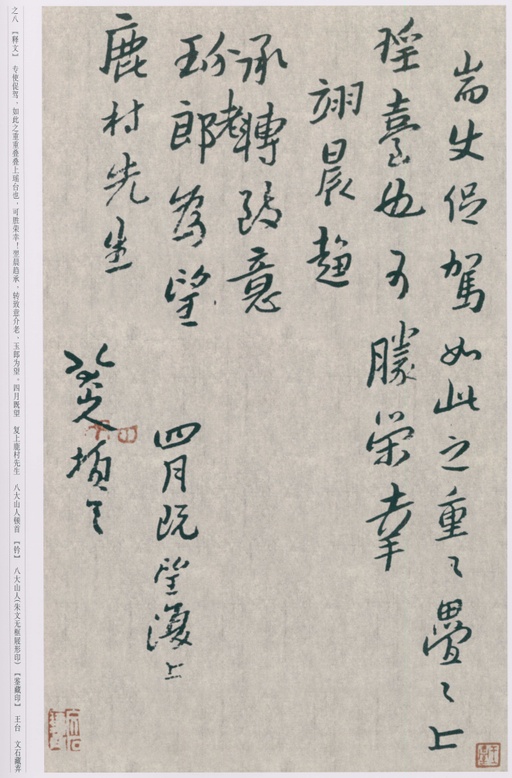 耑使促駕如此之重〻疊〻上
瑶臺也可勝榮幸
翊晨趨
承轉致意
介老
玉郎為望
四月既望復上
鹿村先生
八大山人頓首
之八 【释文】 专使促驾，如此之重重叠叠上瑶台也，可胜荣幸！翌晨趋承，转致意介老、玉郎为望。四月既望 复上鹿村先生 八大山人顿首 【钤】 八大山人（朱文无框屐形印） 【鉴藏印】 王台 文石藏弆